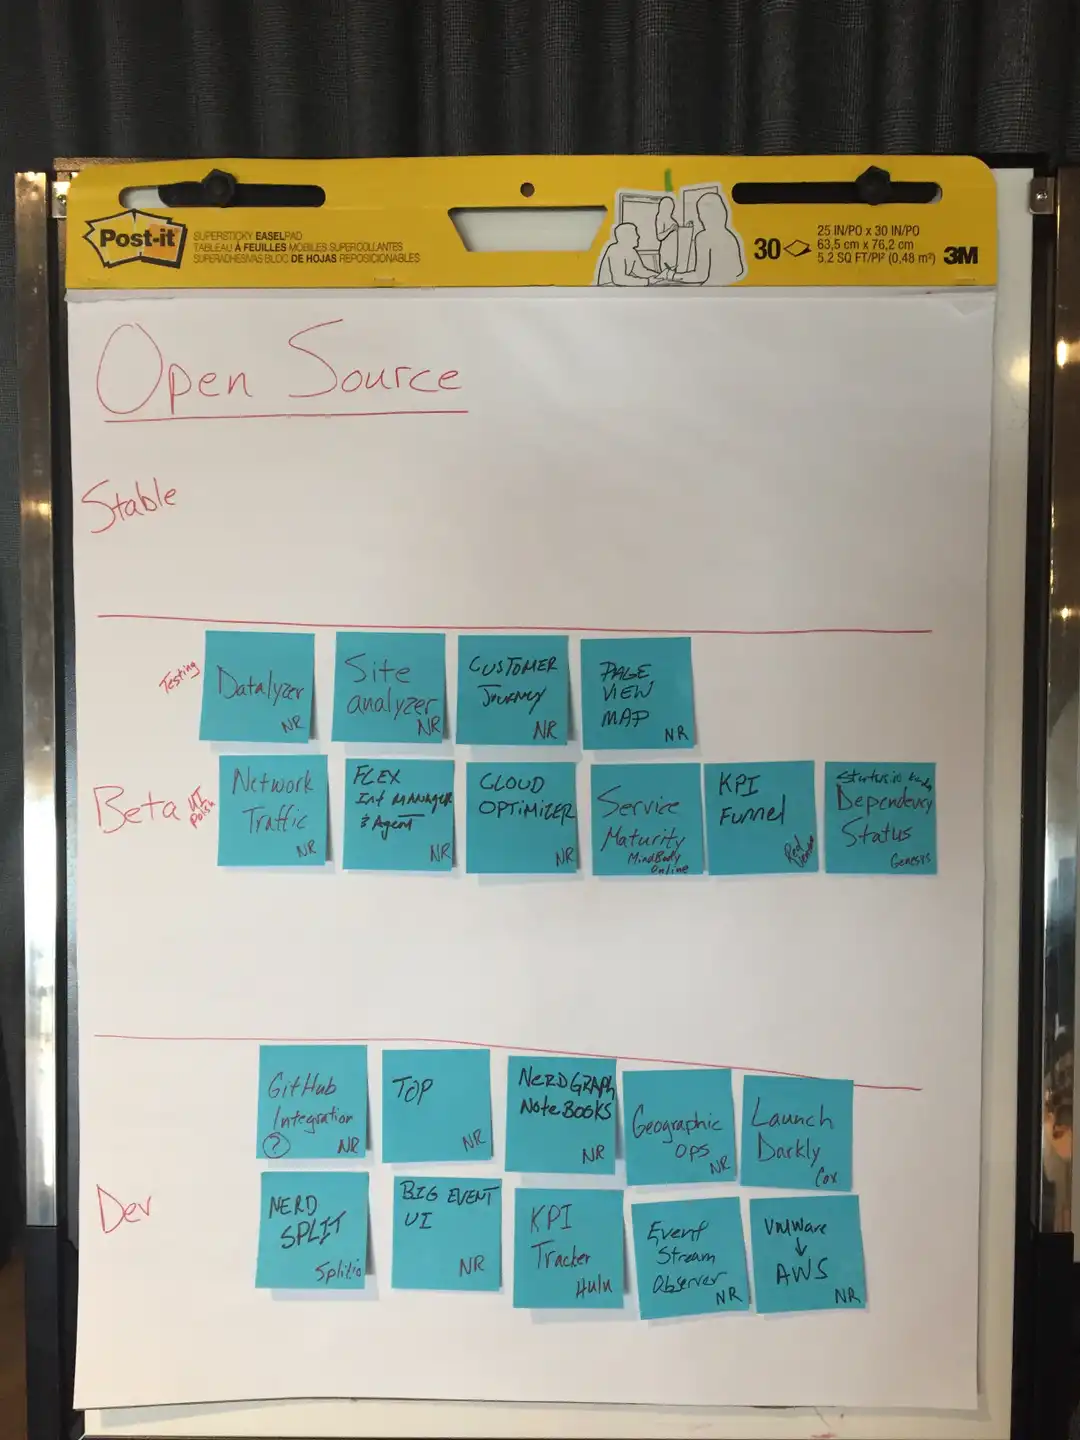 Post-it
SUPERSTICKY EASELPAD
TABLEAU À FEUILLES MOBILES SUPERCOLLANTES
SUPERADHESIVAS BLOC DE HOJAS REPOSICIONABLES
30
25 IN/PO x 30 IN/PO
63,5 cm x 76,2 cm
5.2 SQ FT/PI² (0,48 m²)
3M
Open Source
Stable
Testing
Datalyzer
NR
Site
analyzer
NR
CUSTOMER
JOURNEY
NR
PAGE
VIEW
MAP
NR
Beta
UI
Polish
Network
Traffic
NR
FLEX
Int MANAGER
& Agent
NR
CLOUD
OPTIMIZER
NR
Service
Maturity
MindBody
Online
KPI
Funnel
Red
Dependency
Status
Genesis
Dev
GitHub
Integration
?
NR
TOP
NR
NERDGRAPH
NoteBOOKS
NR
Geographic
OPS
NR
Launch
Darkly
Cox
NERD
SPLIT
Splitio
BIG EVENT
UI
NR
KPI
Tracker
Hulu
Event
Stream
Observer
NR
VMWare
↓
AWS
NR